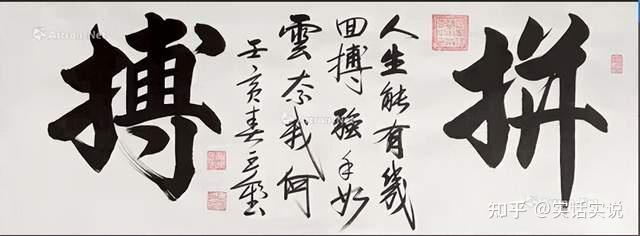 拼
人生能有幾
回搏強手如
雲奈我何
壬寅春
搏
Artron.Net
知乎 @实话实说